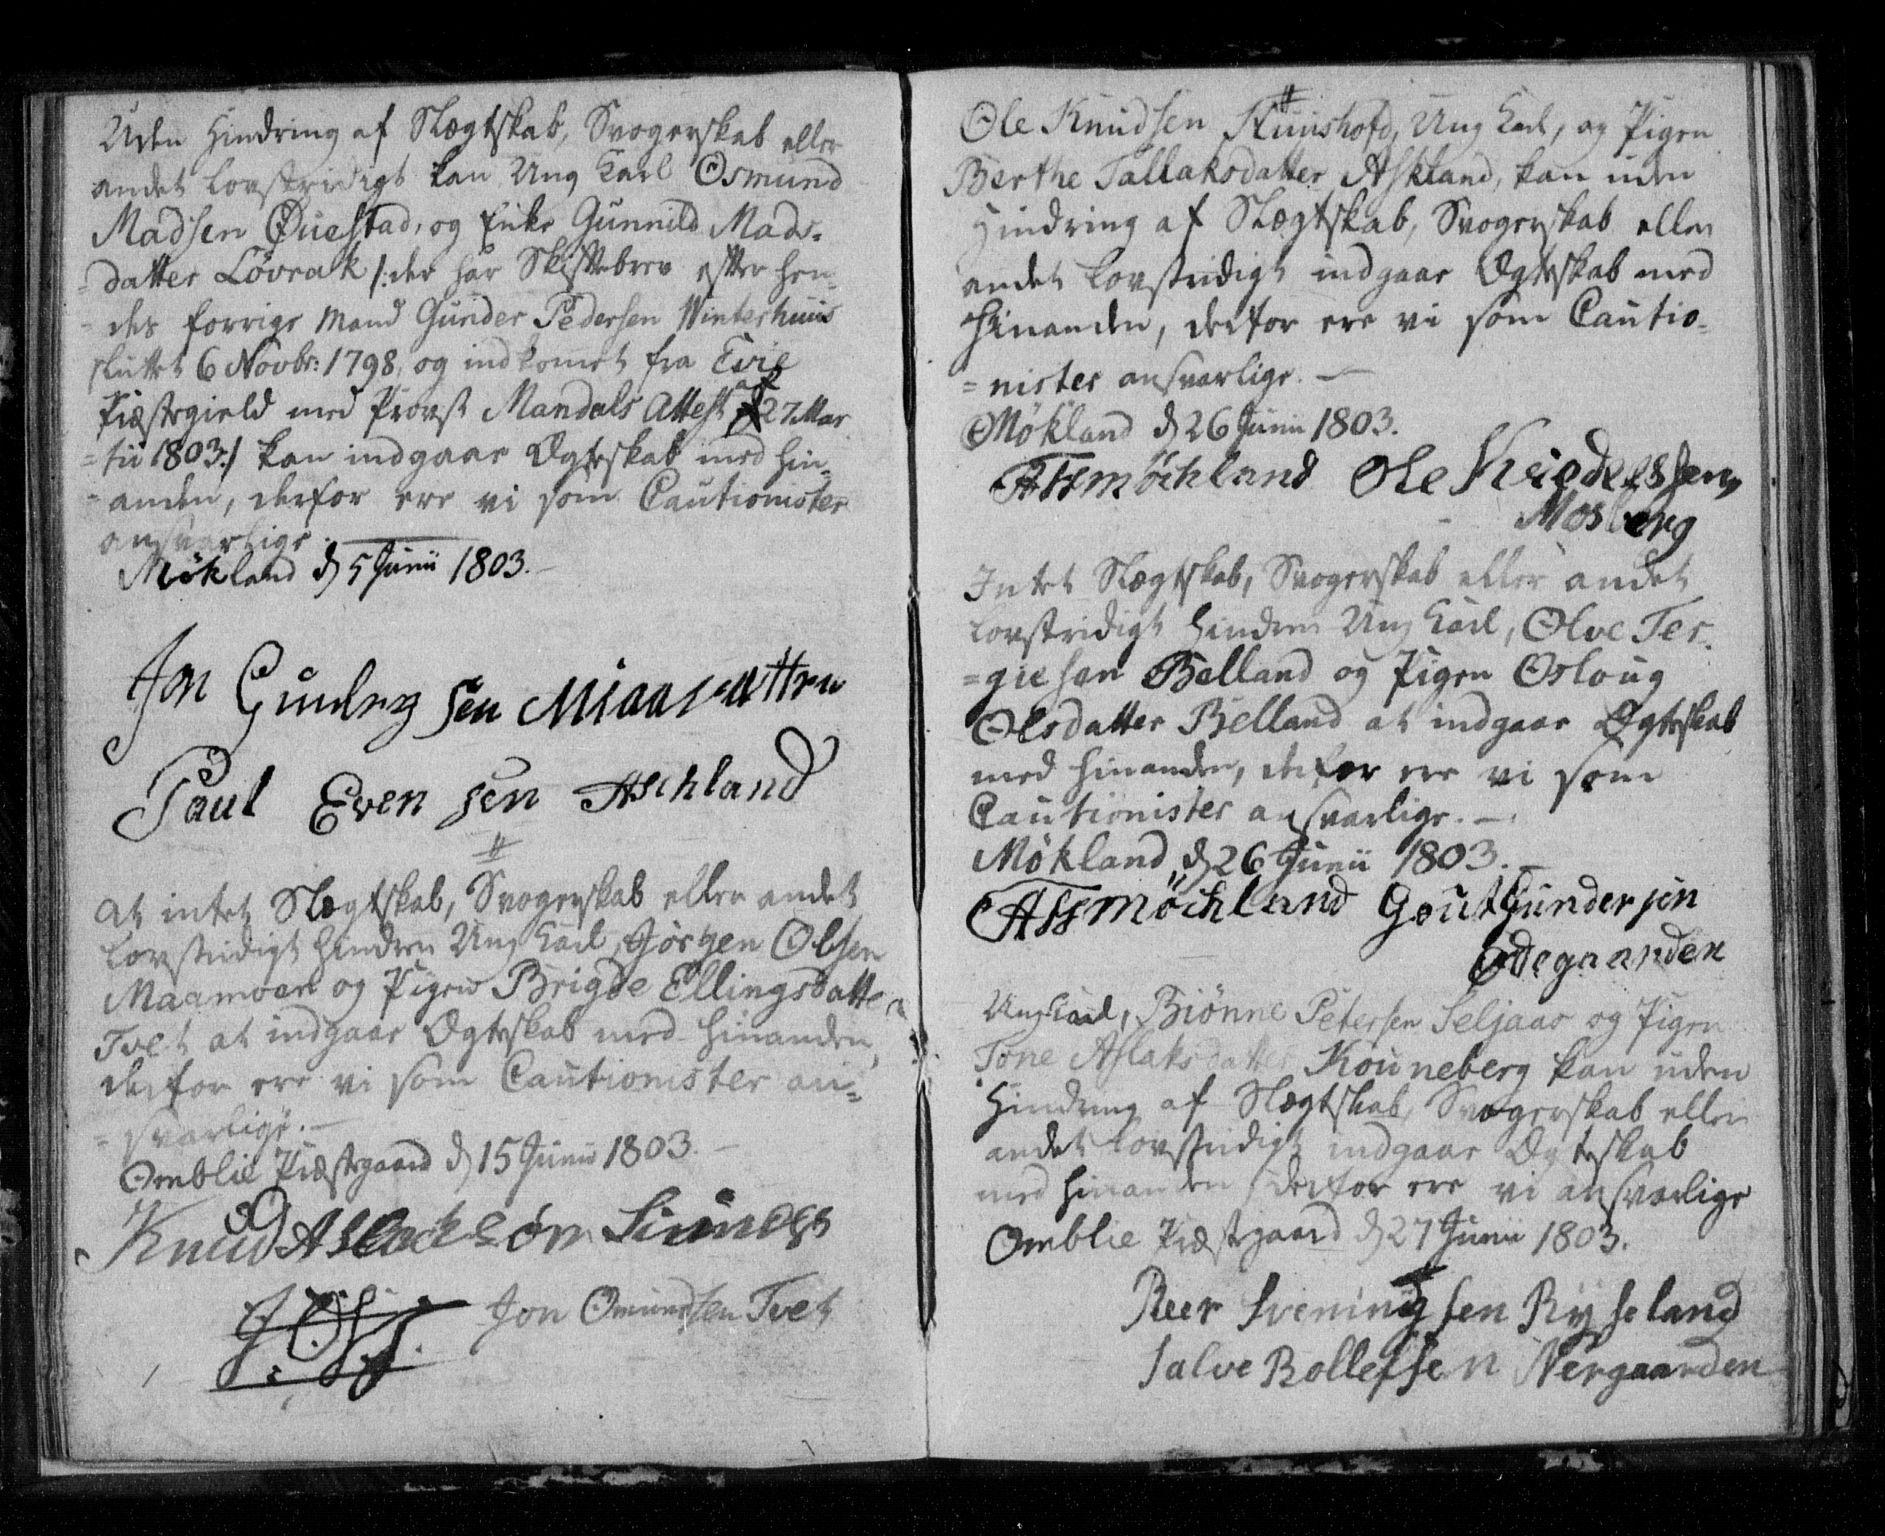 Uden Hindring af Slægtskab, Svogerskab eller
andet lovstridigt kan Ung Karl Osmund
Madsen Øuestad, og Enke Gunnild Mads-
=datter Løvrak /: der har Skiftebrev efter hen-
=des forrige Mand Gunder Pedersen Winterhuus
sluttet 6 Novbr: 1798, og indkomet fra Evie
Præstegield med Provst Mandals Attest af 27 Mar
=tii 1803 :/ kan indgaae Ægteskab med hin-
=anden, derfor ere vi som Cautionister
ansvarlige.
Møkland d 5 Junii 1803.
Jon Gundersen
Paul Even sen Aschland
#
At intet Slægtskab, Svogerskab eller andet
lovstridigt hindrer Ung Karl, Jørgen Olsen
Maamoen og Pigen Brigde Ellingsdatter
Tvet at indgaae Ægteskab med hinanden,
derfor ere vi som Cautionister an=
=svarlige.
Omblie Præstegaard d 15 Junii 1803.
Knud Aslacksøn
Jon Omundsen Tvet
#
Ole Knudsen Huushofd, Ung Karl, og Pigen
Berthe Tallaksdatter Askland, kan uden
Hindring af Slægtskab, Svogerskab eller
andet lovstridigt indgaae Ægteskab med
hinanden, derfor ere vi som Cautio=
=nister ansvarlige.
Møkland d 26 Junii 1803.
ASSmöchland Ole
Mosberg
Intet Slægtskab, Svogerskab eller andet
lovstridigt hindrer Ung Karl, Olve Ter-
=giesen Belland og Pigen Osloug
Olsdatter Belland at indgaae Ægteskab
med hinanden, derfor ere vi som
Cautionister ansvarlige.
Møkland, d 26 Junii 1803.
ASSmöchland Gout Gundersen
Ødegaarden
Ung Karl, Biønne Petersen Seljaas og Pigen
Tone Aslaksdatter Kouneberg kan uden
Hindring af Slægtskab, Svogerskab eller
andet lovstridigt indgaae Ægteskab
med hinanden, derfor ere vi ansvarlige
Omblie Præstegaard d 27 Junii 1803.
Peer Sveningsen Rysseland
Salve Rollefsen Nergaarden